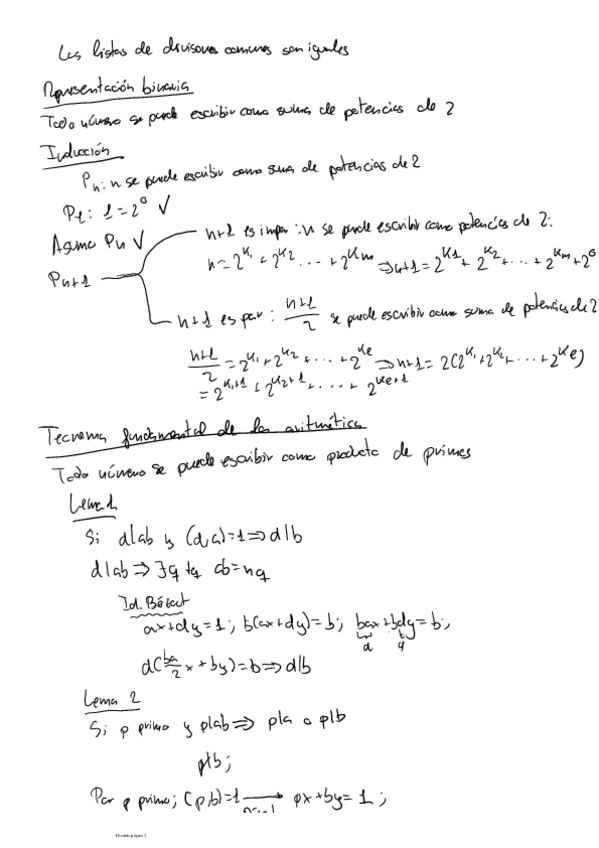 Las listas de divisores comunes son iguales
Representación binaria
Todo número se puede escribir como suma de potencias de 2
Inducción
Pn: n se puede escribir como suma de potencias de 2
P1: 1=2^0 √
Asumo Pn √
n+1 es impar: n se puede escribir como potencias de 2:
n=2^k1 + 2^k2 ... + 2^km ⇒ n+1 = 2^k1 + 2^k2 + ... + 2^km + 2^0
Pn+1
n+1 es par: (n+1)/2 se puede escribir como suma de potencias de 2
(n+1)/2 = 2^k1 + 2^k2 + ... + 2^ke ⇒ n+1 = 2(2^k1 + 2^k2 + ... + 2^ke)
= 2^k1+1 + 2^k2+1 + ... + 2^ke+1
Teorema fundamental de la aritmética
Todo número se puede escribir como producto de primos
Lema 1
Si d|ab y (d,a)=1 ⇒ d|b
d|ab ⇒ ∃q tq ab=nq
Id. Bézout
ax+dy=1; b(ax+dy)=b; bax+bdy=b;
d
d(ba/2 x + by)=b ⇒ d|b
Lema 2
Si p primo y p|ab ⇒ p|a o p|b
p∤b;
Por p primo; (p,b)=1 → px+by=1;